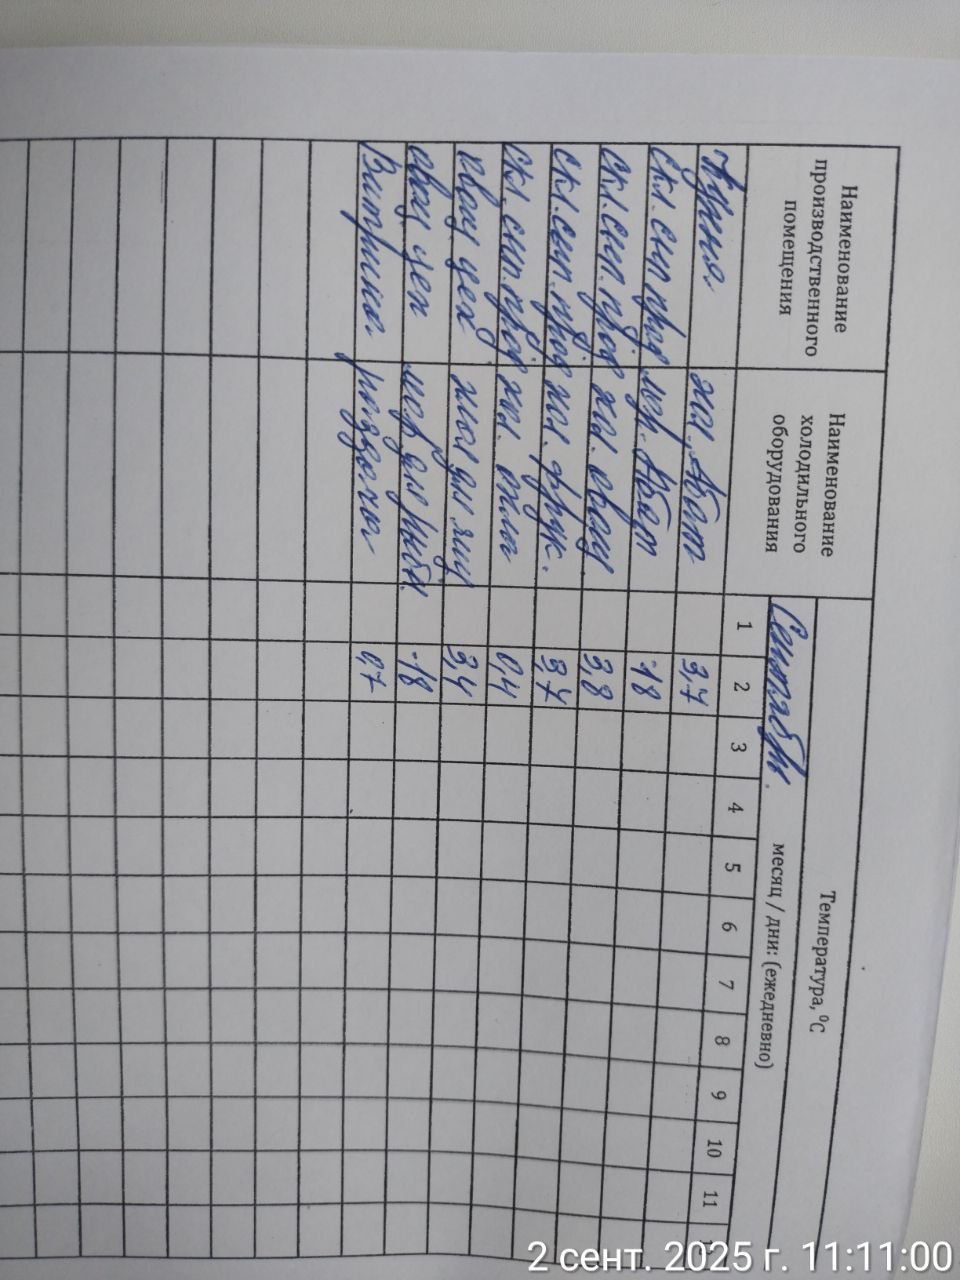 Наименование производственного помещения
Наименование холодильного оборудования
Температура, ⁰С
Сентябрь. месяц / дни: (ежедневно)
1 2 3 4 5 6 7 8 9 10 11
Кухня. хол. Абат 3,7
скл. сып. прод мор. Абат -18
скл. сып. прод хол. овощ 3,8
скл. сып. прод хол. фрук. 3,7
скл. сып. прод. хол. 0,4
овощ. цех хол для яиц 3,4
овощ. цех мор для рыбы. -18
Витрина. раздачи 0,7
2 сент. 2025 г. 11:11:00